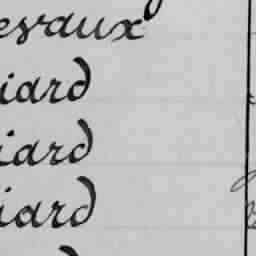 evaux
iard
iard
iard